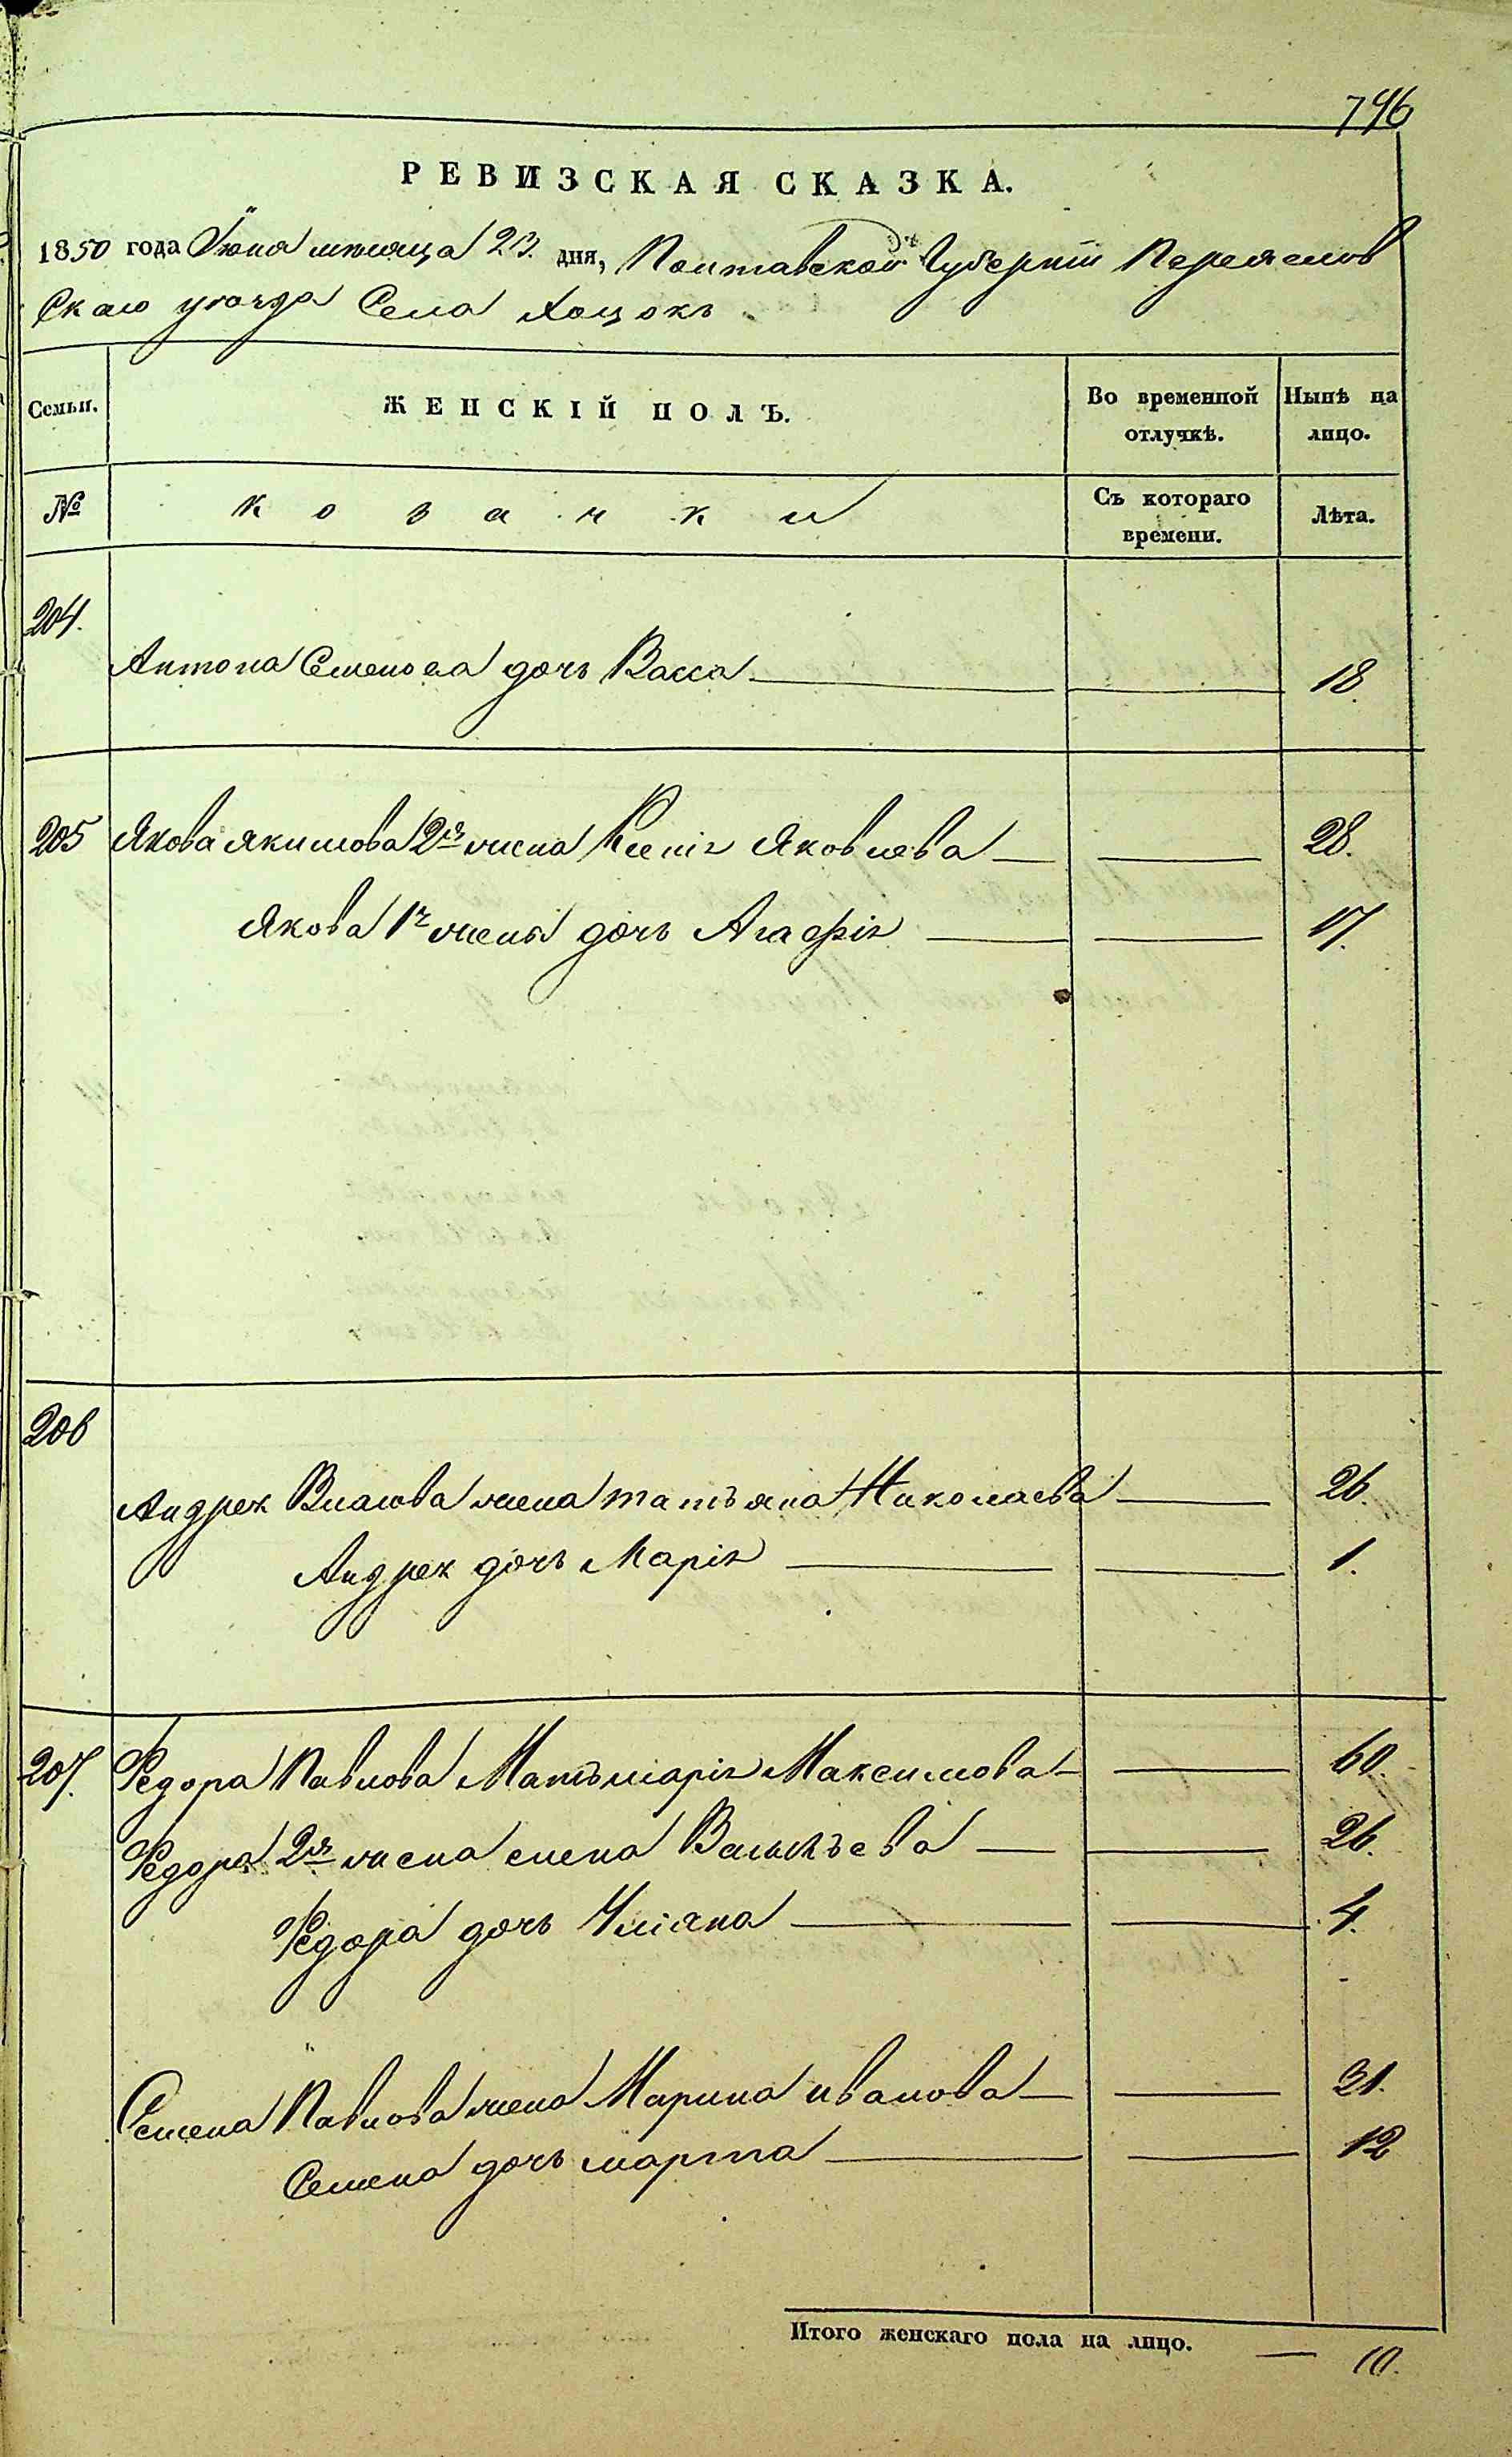 796
РЕВИЗСКАЯ СКАЗКА.
1850 года Іюня месяца 23 дня, Полтавской Губерніи Переяслов
Скаго уезда Села Хоцокъ
Семьи. ЖЕНСКІЙ ПОЛЪ. Во временной отлучкѣ. Нынѣ на лицо.
№ козачки Съ котораго времени. Лѣта.
204.
Антона Семенова дочь Васса 18.
205 Якова якимова 2я жена Ксенія Яковлева 28.
Якова 1й жены дочь Агафія 17.
206
Андрея Власова жена татьяна Николаева 26.
Андрея дочь Марія 1.
207. Федора Павлова Мать марія Максимова 60.
Федора 2я жена елена Васильева 26.
Федора дочь Уліяна 4.
Семена Павлова жена Марина иванова 31.
Семена дочь марта 12
Итого женскаго пола на лицо. 10.